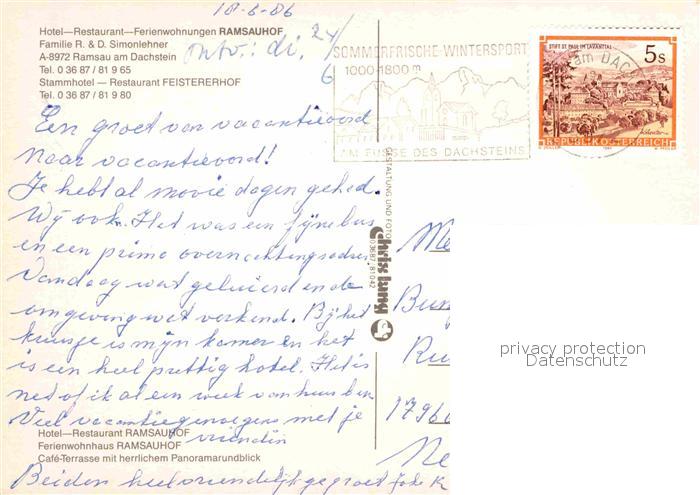 18-6-86
Hotel—Restaurant—Ferienwohnungen RAMSAUHOF
Familie R. & D. Simonlehner
A-8972 Ramsau am Dachstein
Tel. 0 36 87 / 81 9 65
Stammhotel — Restaurant FEISTERERHOF
Tel. 0 36 87 / 81 9 80
ontv.: di. 24/6
SOMMERFRISCHE-WINTERSPORT
1000-1800 m
AM FUSSE DES DACHSTEINS
am DACH
STIFT ST. PAUL IM LAVANTTAL
5 S
REPUBLIK ÖSTERREICH
Een groet van vacantieoord
naar vacantieoord!
Je hebt al mooie dagen gehad.
Wij ook. Het was een fijne bus
en een prima overnachtingsadres.
Vandaag wat geluierd en de
omgeving wat verkend. Bij het
kruisje is mijn kamer en het
is een heel prettig hotel. Het is
net of ik al een week van huis ben.
Veel vacantiegenoegens met je
vriendin
Hotel—Restaurant RAMSAUHOF
Ferienwohnhaus RAMSAUHOF
Café-Terrasse mit herrlichem Panoramarundblick
Beiden heel vriendelijk gegroet Joke K
GESTALTUNG UND FOTO
Chriss Lang
0 36 87, 81 0 42
Me
Bu
Ru
1796
Ne
privacy protection
Datenschutz